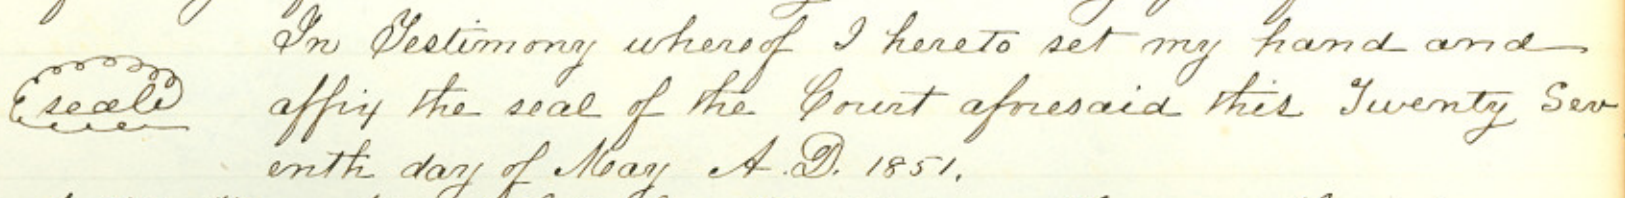 In Testimony whereof I hereto set my hand and
seal
affix the seal of the Court aforesaid this Twenty Sev
enth day of May A.D. 1851.